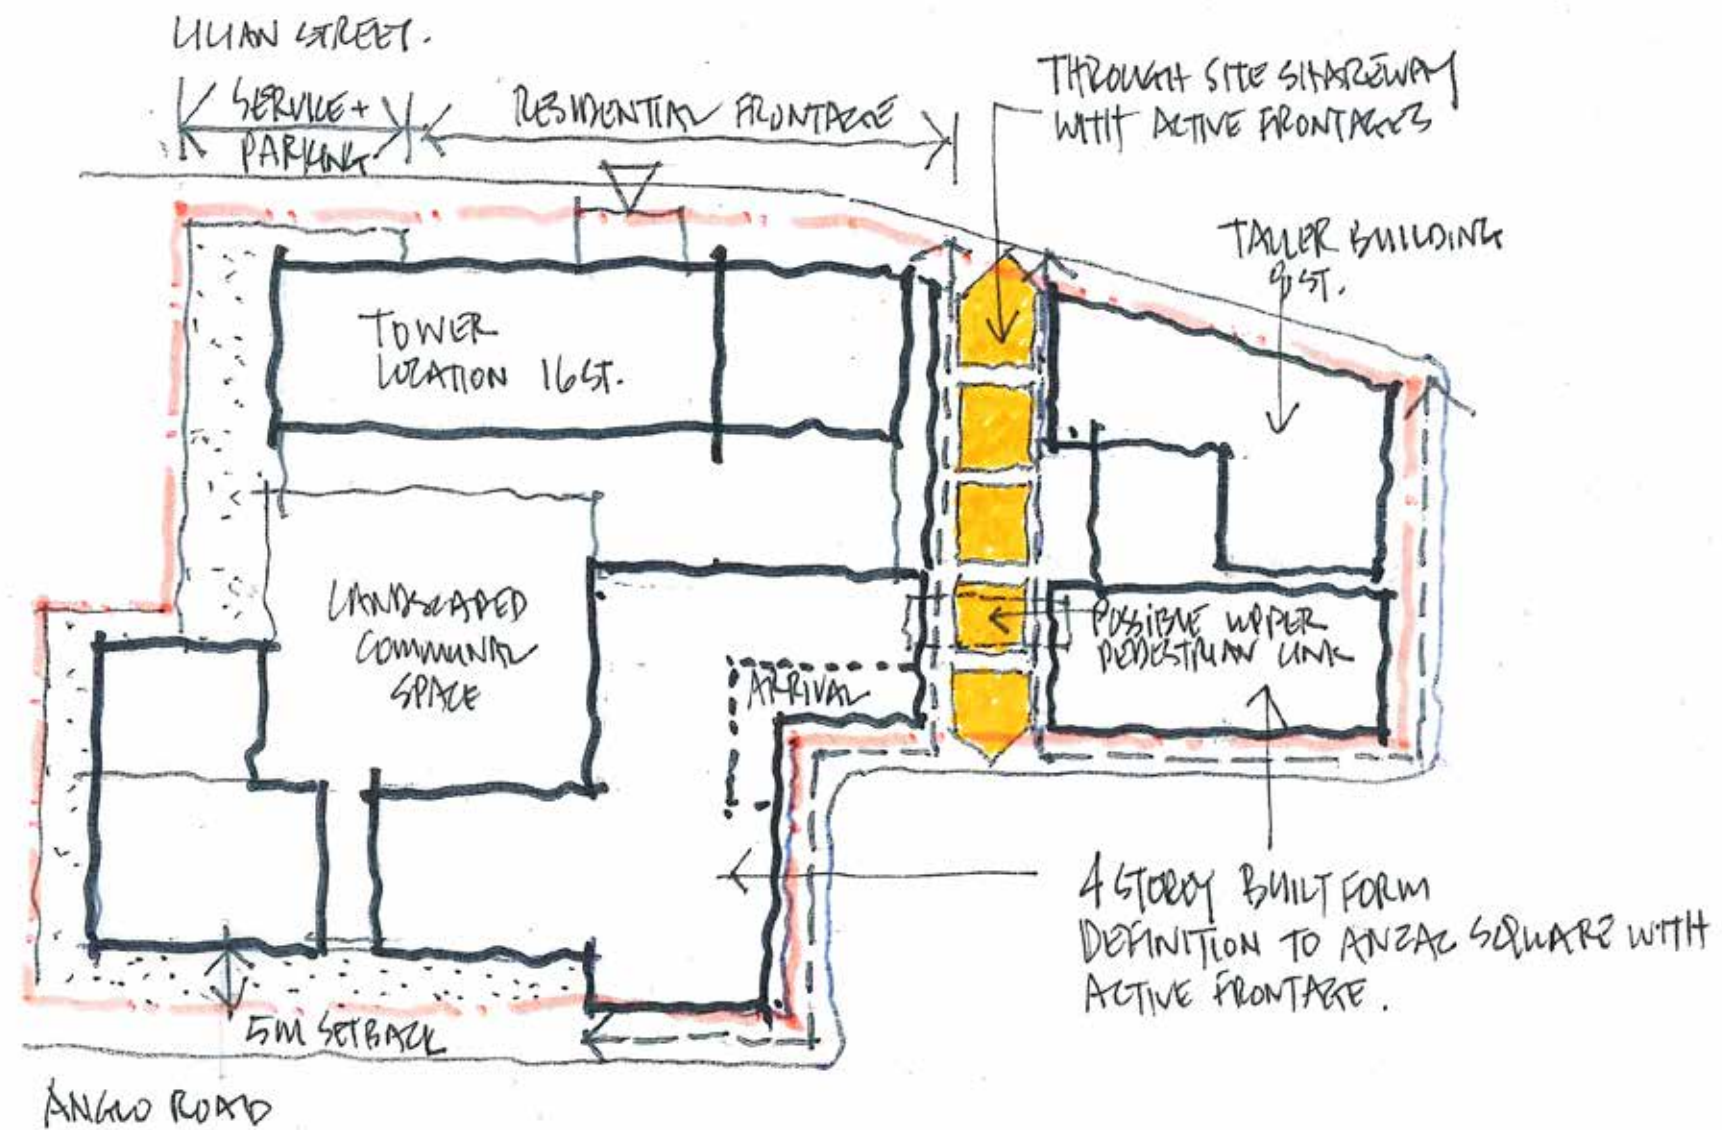 LILIAN STREET.
SERVICE +
PARKING
RESIDENTIAL FRONTAGE
THROUGH SITE SHAREWAY
WITH ACTIVE FRONTAGES
TALLER BUILDING
9 ST.
TOWER
LOCATION 16 ST.
LANDSCAPED
COMMUNAL
SPACE
POSSIBLE UPPER
PEDESTRIAN LINK
ARRIVAL
4 STOREY BUILT FORM
DEFINITION TO ANZAC SQUARE WITH
ACTIVE FRONTAGE.
5M SETBACK
ANGLO ROAD